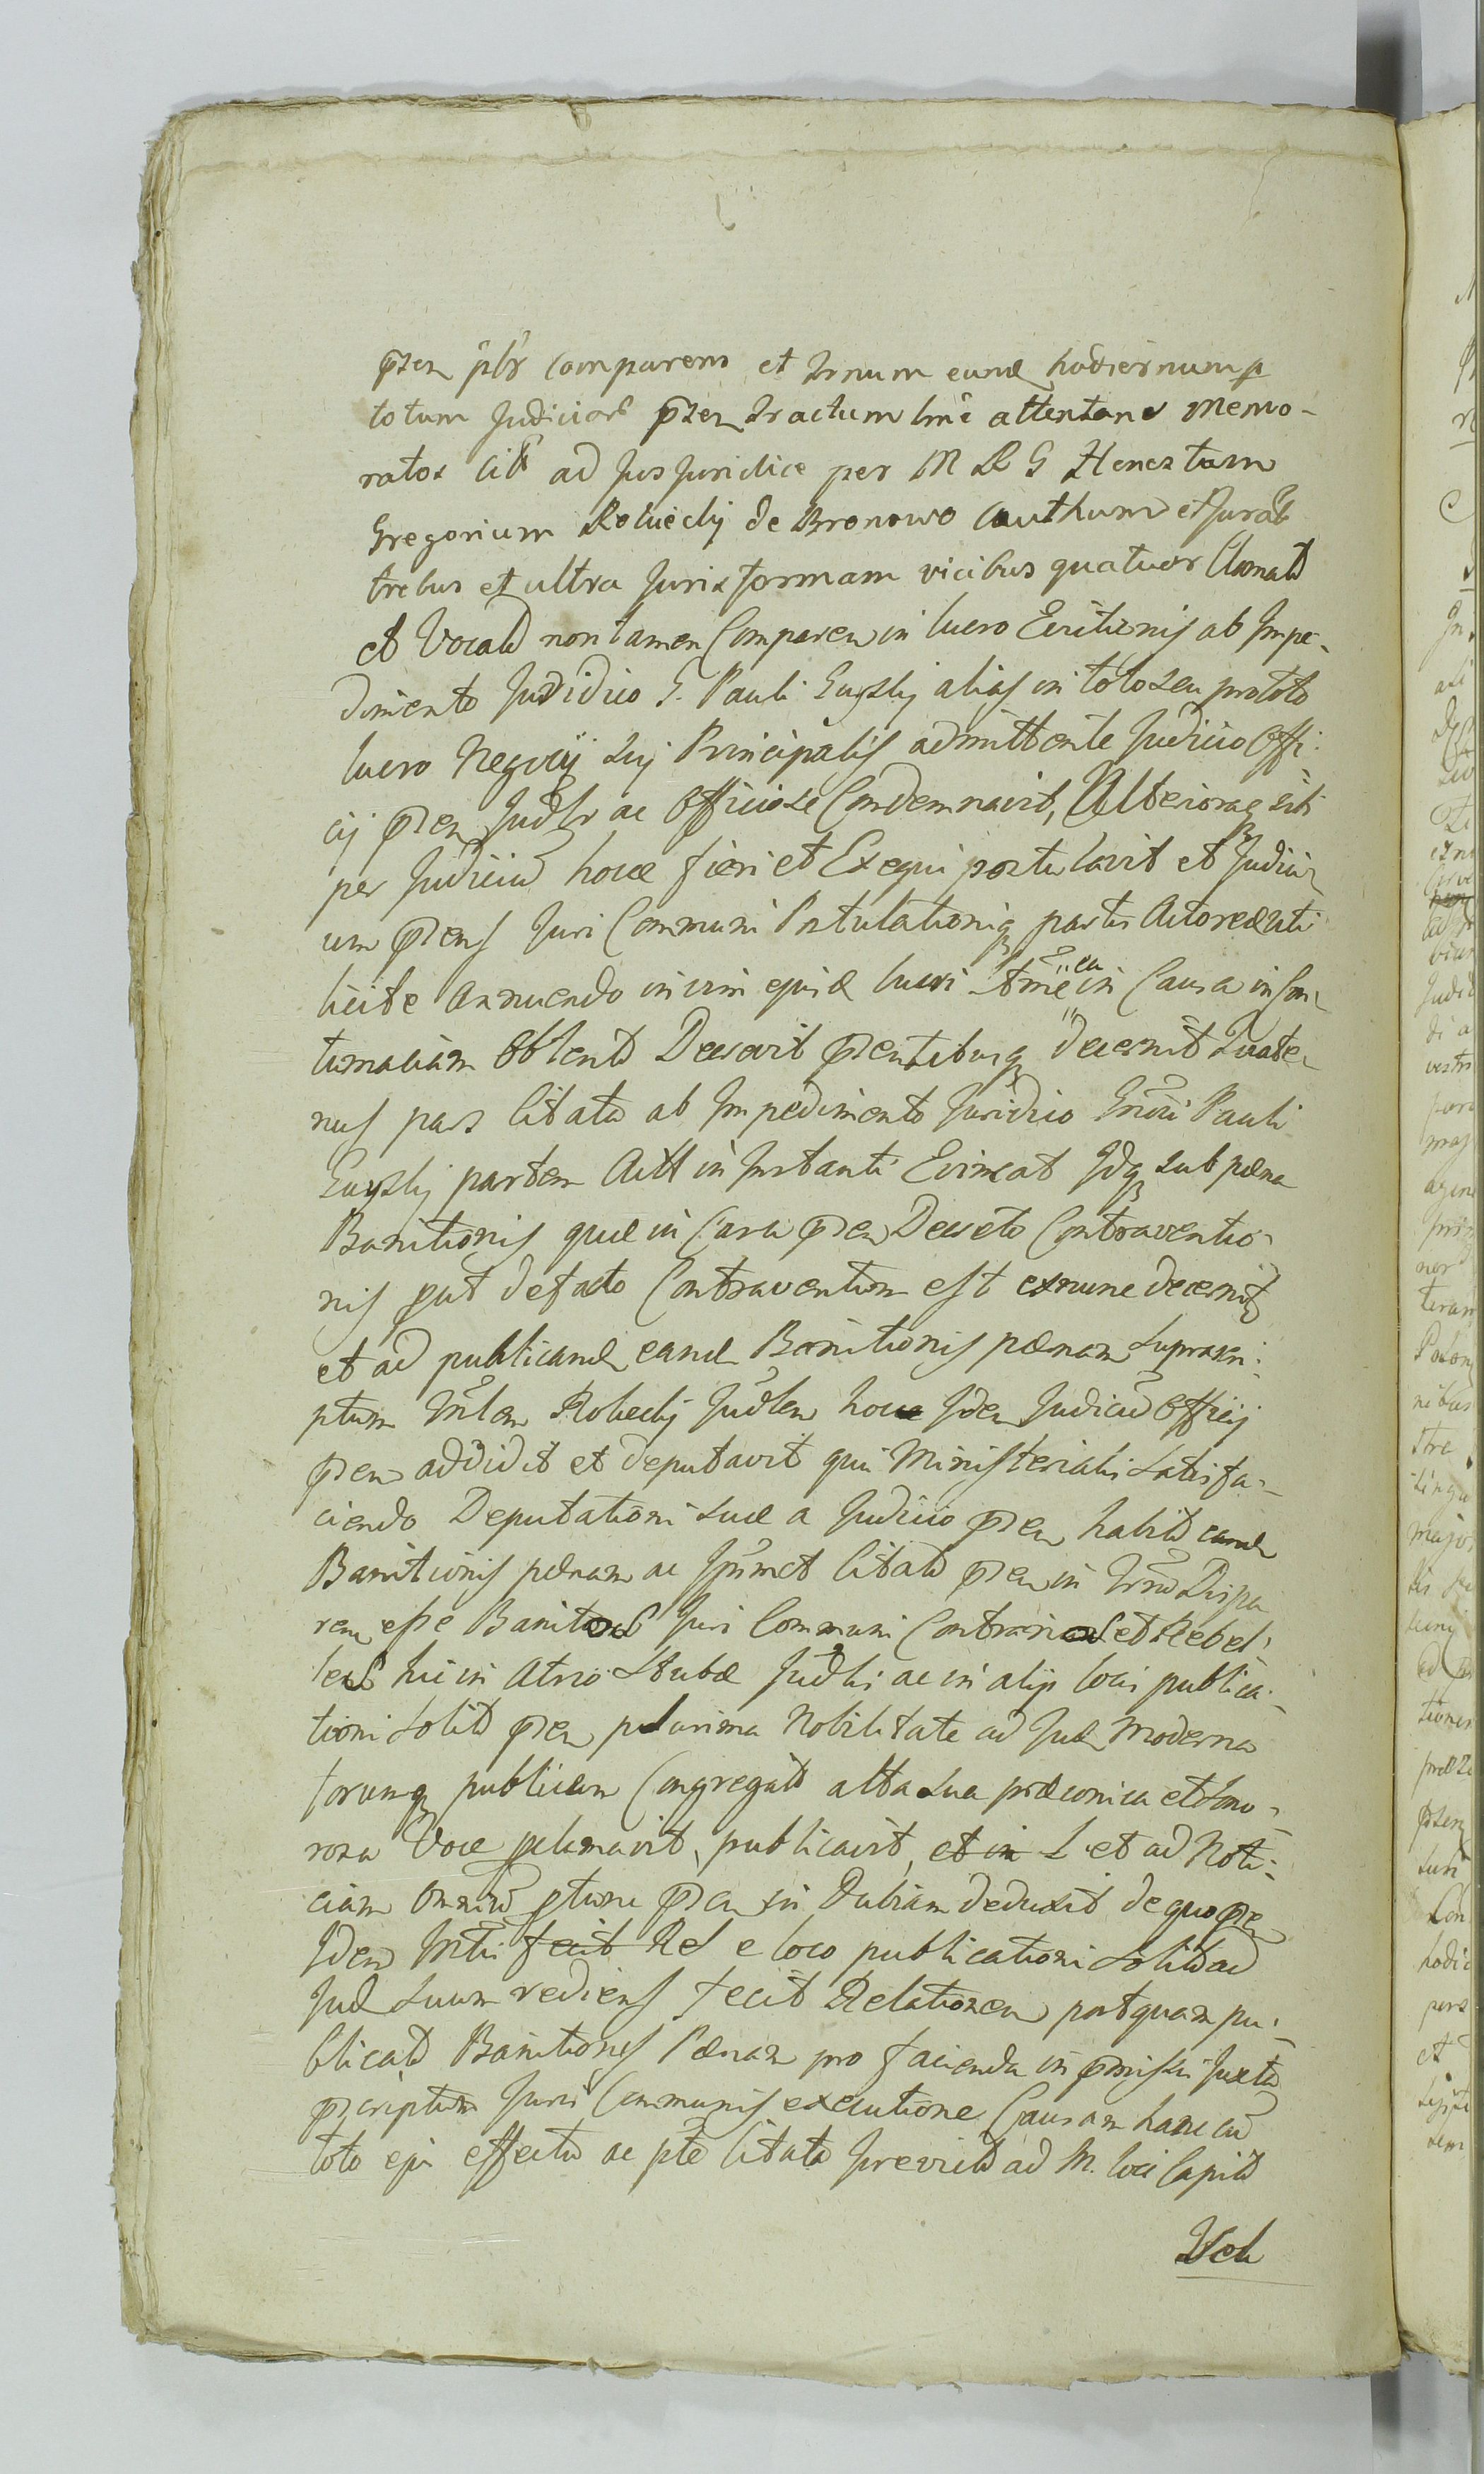 psen plr comparens et trnum eund hodiernum p
totum Judiciar psen tractum lme attentans memo-
ratos cit ad Jus Juridice per M R G Honestum
Gregorium Robiecky de Bronowo authum et Jurat
trebus et ultra Juris formam vicibus quatuor Clamat
et Vocat non tamen Comparen in lucro Evictionis ab Impe-
dimento Juridico G. Pauli alias in toto seu pro toto
lucro Negocij sui Principalis admittente Judicio Offi-
cij psen Judlr ac Officiose Condemnavit, Ulterioraq sibi
per Judiciu hocce fieri et Exequi postulavit et Judici-
um psens Juri Communi Postulationiq partis Actoreae uti
licite annuendo in vim ejusd lucri in Causa in Con-
tumaciam Obtent Decrevit psentibusq decernit Quate-
nus pars Citata ab Impedimento Juridico Pauli
partem Act in Instanti Evincat Idq sub paena
Banitionis quae in Casu psen Decreto Contraventio-
nis put de facto Contraventum est exnunc decernit
et ad publicand eand Banitionis paenam suprascri-
ptum Mtlem Robecky Judlem hocce Iden Judiciu Officij
psen addidit et deputavit qui Ministerialis satisfa-
ciendo Deputationi suae a Judicio psen habit eand
Banitionis paenam ac Ipsmet Citat psen in
ren esse Banitos Juri Communi Contrarios et Rebel-
les hic in Atrio Stubae Judlis ac in alijs locis publica-
tioni solit psen plurima Nobilitate ad Jud Moderna
forumq publicum Congregat alta sua praeconica et sono-
rosa Voce pclamavit, publicavit, et in L et ad Noti-
ciam Omniu psen in Dubiam deduxit de quo pse
Iden Mtlis fecit Rel e loco publicationi solit ad
Jud suum rediens fecit Relationem postquam pu-
blicat Banitionis Paenam pro facienda in pmissis Juxta
pscriptum Juris Communis executione Causam hanc cu
toto ejus effectu ac pte Citata ad M. loci Capit